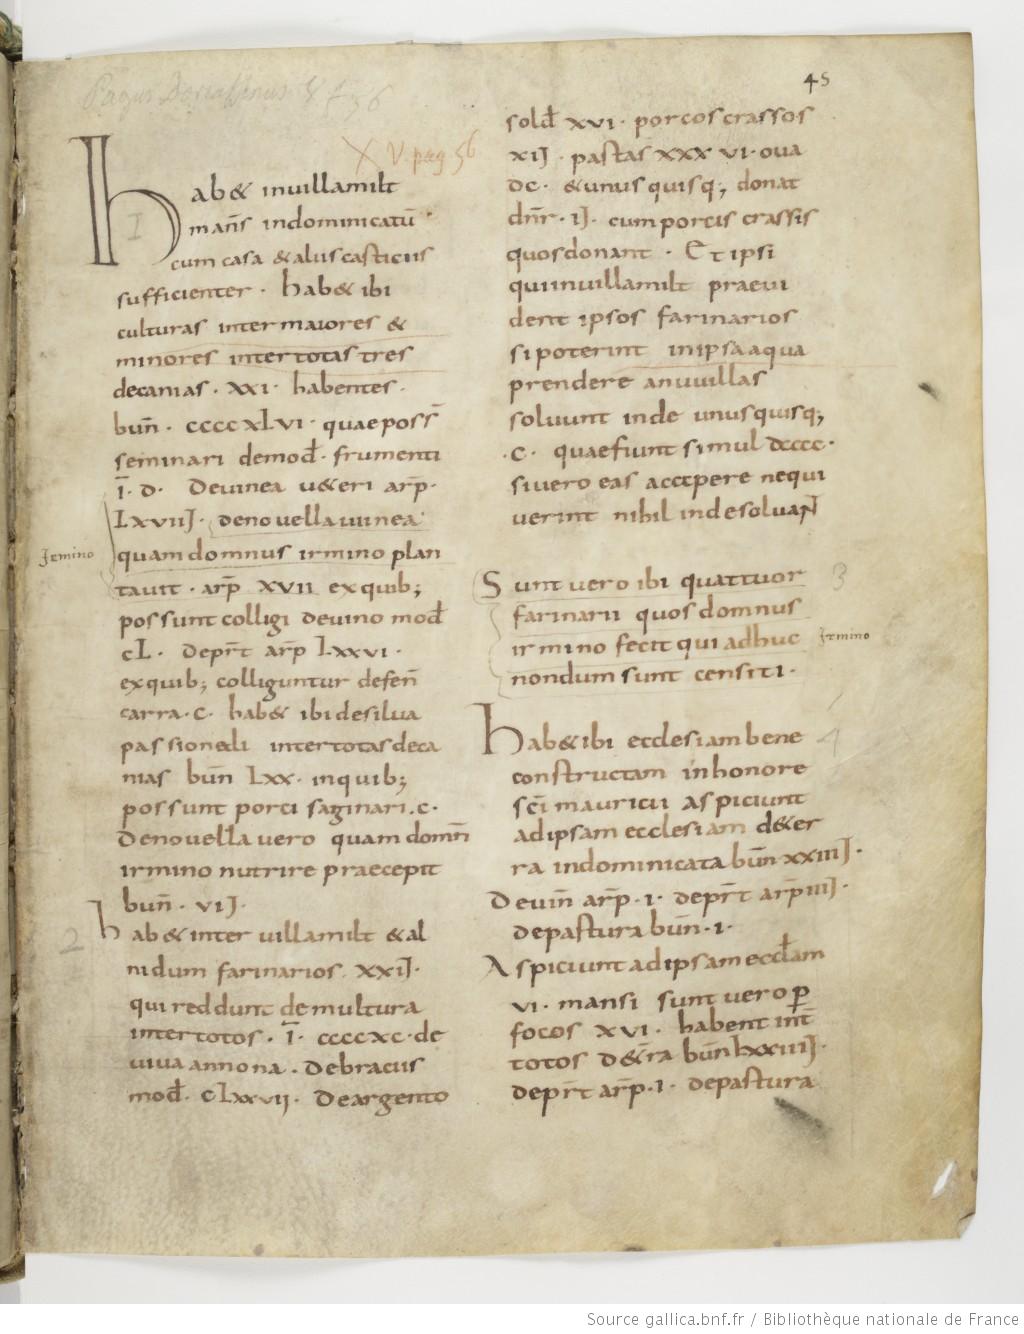 45
Pagus Dorcassinus
X V. pag 56
hab& in villa milt
mans̄ indominicatū
cum casa & aliis casticiis
sufficienter · hab& ibi
culturas inter maiores &
minores inter totas tres
decanias · xxi · habentes ·
bun̄ · ccccxLvi · quae poss̄
seminari de mod̄ · frumenti
ī · d · De vinea u&eri arp̄ ·
Lxviij · de novella vinea
quam domnus irmino plan
tavit · arp̄ xvii ex quib;
possunt colligi de vino mod̄
cL · de prat̄ arp̄ Lxxvi ·
ex quib; colliguntur de fen̄
carra · c · hab& ibi de silva
passionali inter totas deca
nias bun̄ Lxx · in quib;
possunt porci saginari · c ·
De novella vero quam domn̄
irmino nutrire praecepit
bun̄ · vij ·
hab& inter villa milt & al
nidum farinarios xxij ·
qui reddunt de multura
inter totos · ī · ccccxc · de
viva annona · de braciis
mod̄ · cLxxvij · de argento
Irmino
1
2
sold̄ xvi · porcos crassos
xij · pastas xxxvi · ova
dc · & unusquisq; donat
dnr̄ · ij · cum porcis crassis
quos donant · Et ipsi
qui in villa milt praevi
dent ipsos farinarios
si poterint in ipsa aqua
prendere anuuillas
soluunt inde unusquisq;
· c · quae fiunt simul dcccc ·
si vero eas accepere nequi
verint nihil inde soluant
Sunt vero ibi quattuor
farinarii quos domnus
irmino fecit qui adhuc
nondum sunt censiti ·
3
Irmino
hab& ibi ecclesiam bene
constructam in honore
sc̄i mauricii aspiciunt
ad ipsam ecclesiam de t&er
ra indominicata bun̄ xxiiij ·
De vin̄ arp̄ · i · de prat̄ arp̄ iij ·
de pastura bun̄ · i ·
Aspiciunt ad ipsam eccl̄am
vi · mansi sunt vero p̄
focos xvi · habent int̄
totos de t&ra bun̄ Lxxiiij ·
de prat̄ arp̄ · i · de pastura
4
Source gallica.bnf.fr / Bibliothèque nationale de France